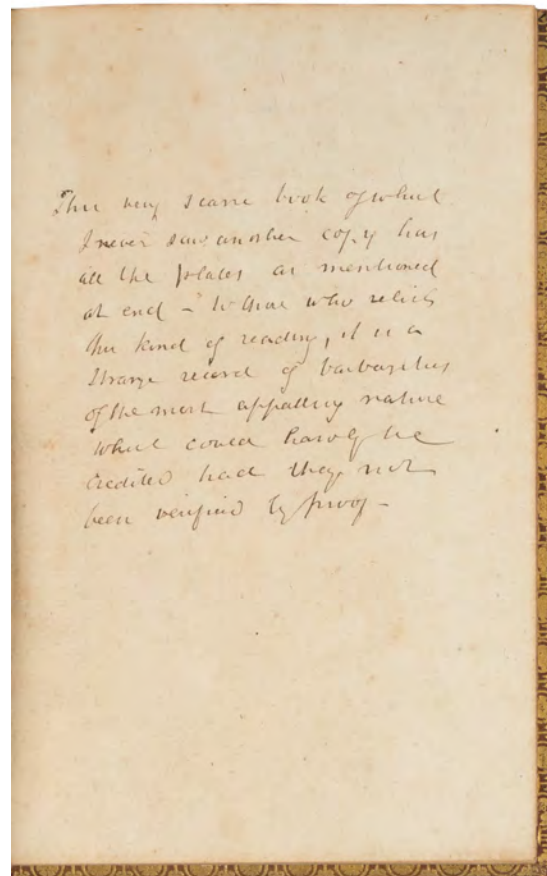 This very scarce book of which
I never saw another copy has
all the plates as mentioned
at end – To those who relish
this kind of reading, it is a
strange record of barbarities
of the most appalling nature
which could hardly be
credited had they not
been verified by proof –